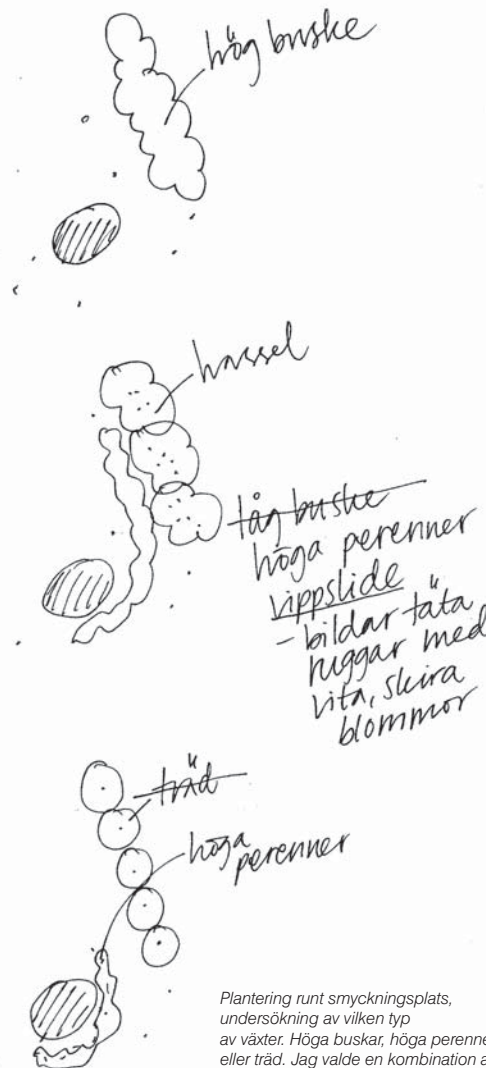 hög buske
hassel
låg buske
höga perenner
vippslide
- bildar täta
ruggar med
vita, skira
blommor
träd
höga
perenner
Plantering runt smyckningsplats,
undersökning av vilken typ
av växter. Höga buskar, höga perenne
eller träd. Jag valde en kombination a